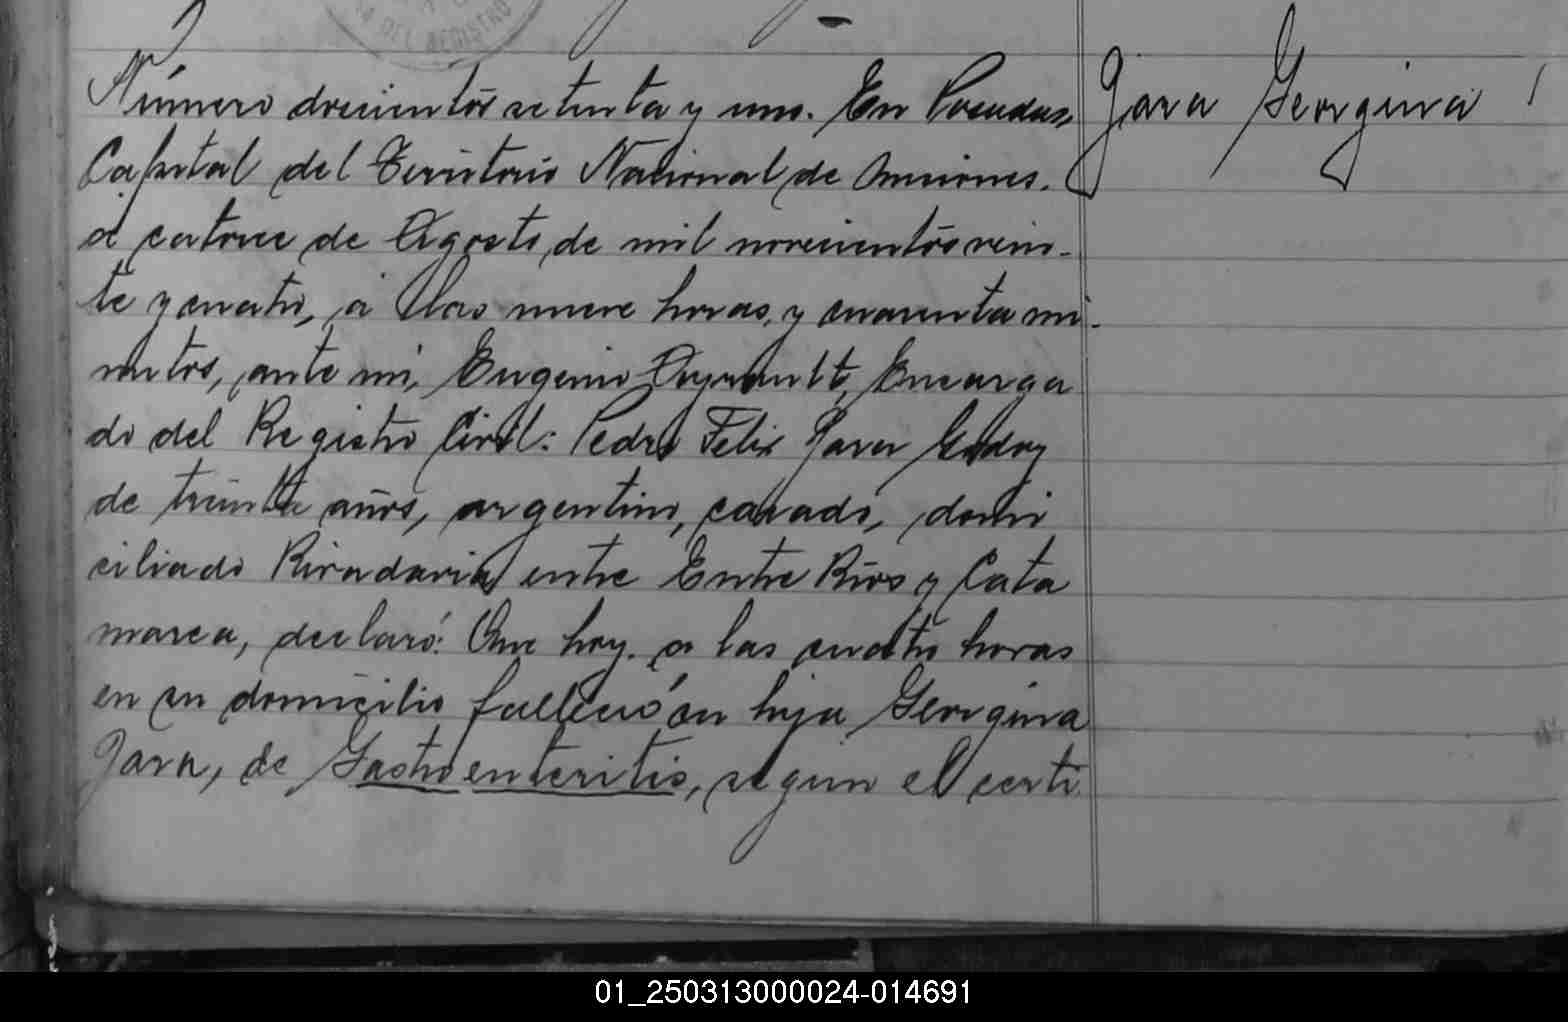 DEL REGISTRO
Número doscientos setenta y uno. En Posadas, Jara Georgina
Capital del Territorio Nacional de Misiones.
á catorce de Agosto de mil novecientos vein-
te y cuatro, á las nueve horas, y cuarenta mi-
nutos, ante mi, Eugenio Encarga
do del Registro Civil: Pedro Felix Jara Godoy
de treinta años, argentino, casado, domi
ciliado Rivadavia entre Entre Rios y Cata
marca, declaró: Que hoy. a las cuatro horas
en su domicilio falleció su hija Georgina
Jara, de Gastro enteritis, según el certi
01_250313000024-014691